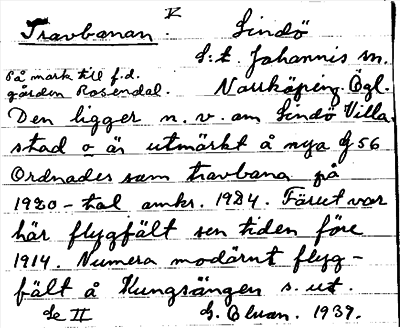 V
Travbanan. Lindö
S:t. Johannis sn.
På mark till f.d. Norrköping. Ögl.
gården Rosendal.
Den ligger n.v. om Lindö Villa-
stad o är utmärkt å nya G 56
Ordnades som travbana på
1920-tal omkr. 1924. Förut var
här flygfält sen tiden före
1914. Numera modärnt flyg-
fält å Kungsängen s. ut.
Le II G. Ekvan. 1937.